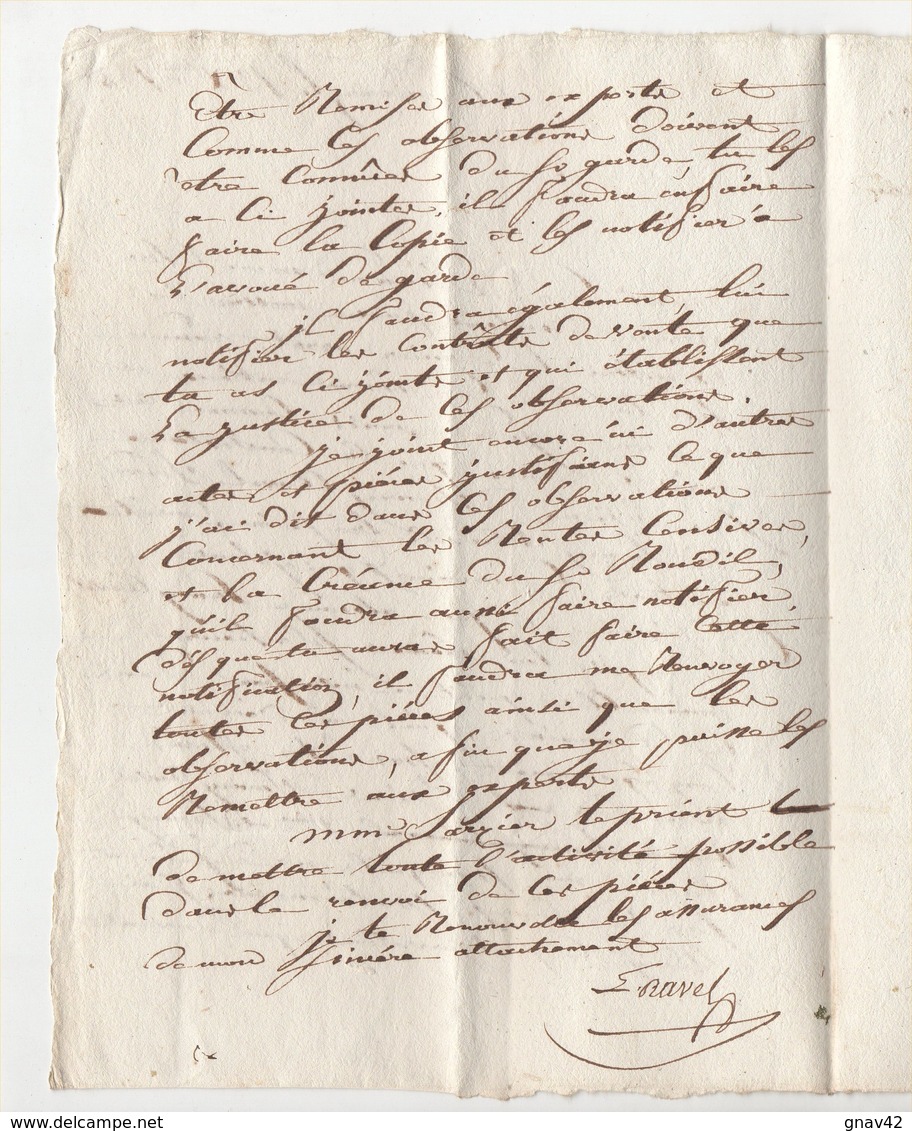 être Remises aux experts et
Comme les observations doivent
être Connües du sr garde tu les
a ci jointes, il faudra en faire
faire la Copie et les notifier a
L'avoué de garde
il faudra également, lui
notifier les Contrats de vente que
tu as ci joints et qui établissent
La justice de ces observations.
je joint encore ici d'autres
actes et pièces justifians ce que
j'ai dit dans les observations
Concernant les Rentes Censives,
et la Créance du sr Roudil,
qu'il faudra aussi faire notifier
dès que tu auras fait faire Cette
notification, il faudra me Renvoyer
toutes les pièces ainsi que les
observations, afin que je puisse les
Remettre aux experts
mm. te prient
de mettre toute l'activité possible
dans le renvoi de ces pièces
je te Renouvelle les assurances
de mon sincère attachement
Ravel
www.delcampe.net
gnav42